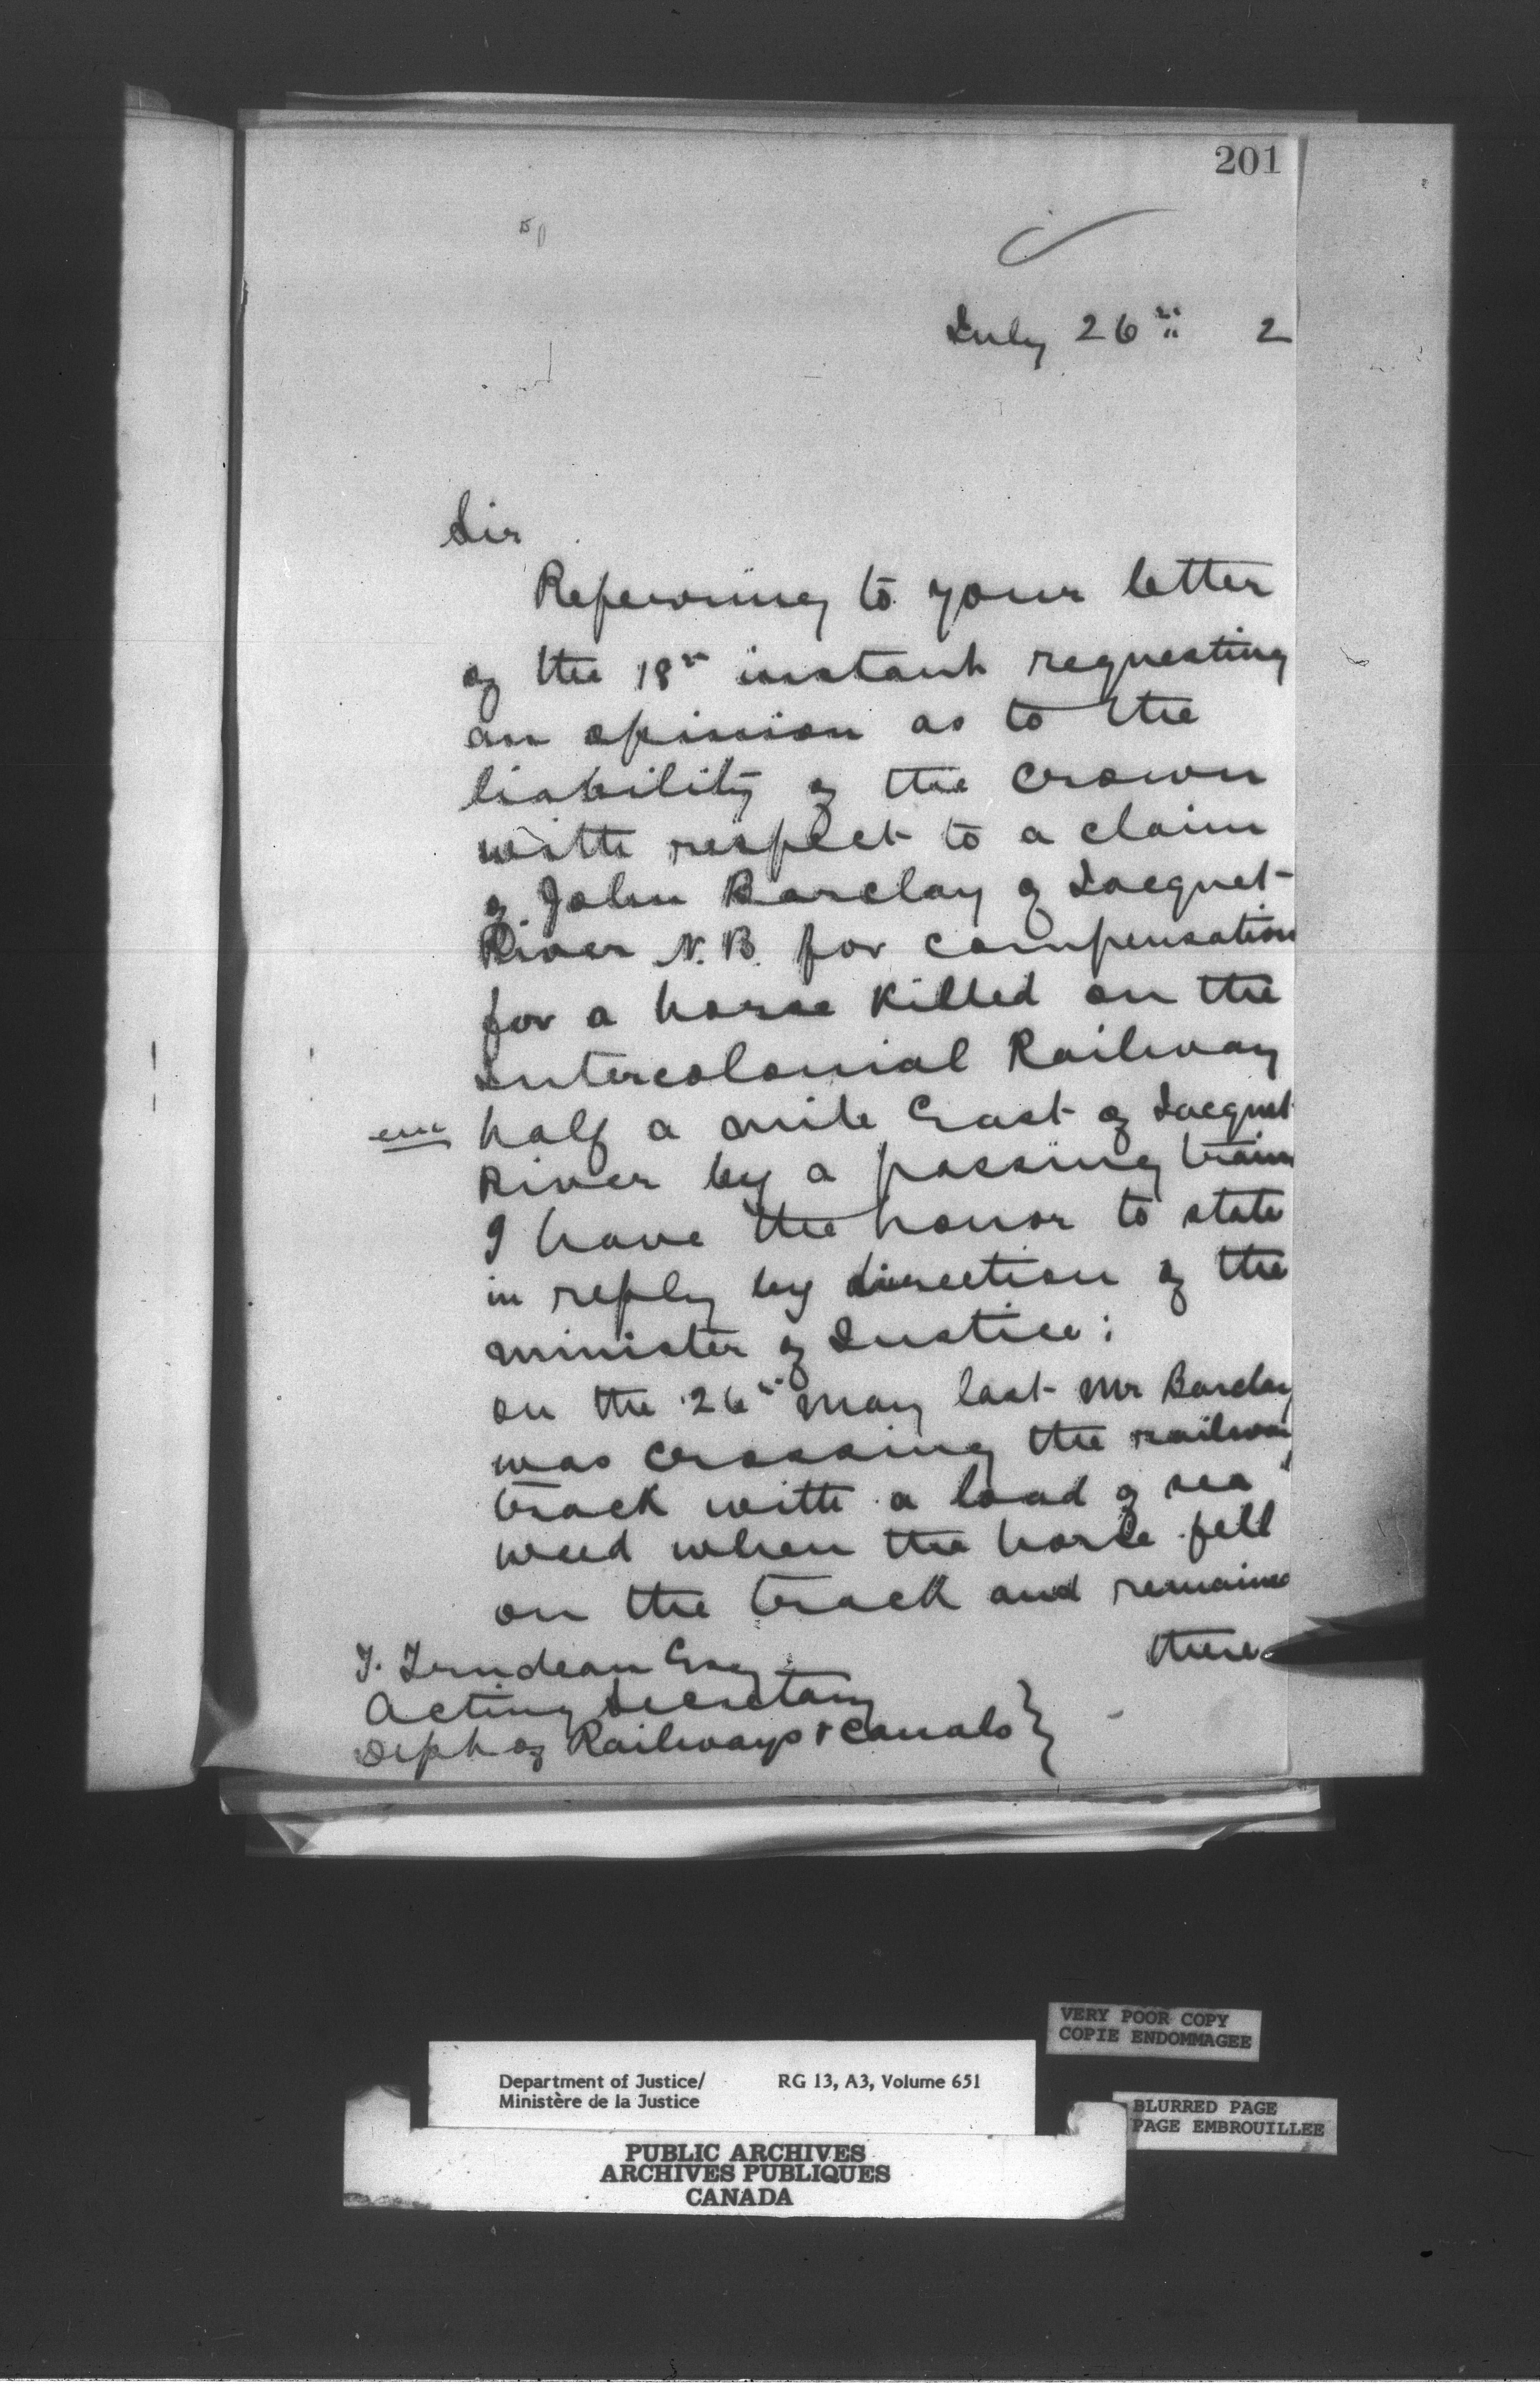 201
July 26th 2
Sir
Referring to your letter
of the 18th instant requesting
an opinion as to the
liability of the Crown
with respect to a claim
of John Barclay of Jacquet
River N.B. for compensation
for a horse killed on the
Intercolonial Railway
half a mile East of Jacquet
River by a passing train
I have the honor to state
in reply by direction of the
minister of Justice:
on the 26th May last Mr Barclay
was crossing the railway
track with a load of sea
weed when the horse fell
on the track and remained
there
T. Trudeau Esq
Acting Secretary
Dept of Railways & Canals
VERY POOR COPY
COPIE ENDOMMAGEE
Department of Justice/ RG 13, A3, Volume 651
Ministère de la Justice
BLURRED PAGE
PAGE EMBROUILLEE
PUBLIC ARCHIVES
ARCHIVES PUBLIQUES
CANADA